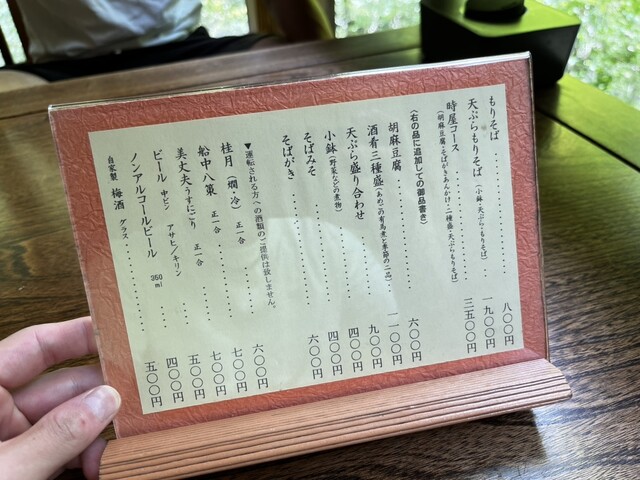 もりそば 八〇〇円
天ぷらもりそば（小鉢・天ぷら・もりそば） 一九〇〇円
時屋コース 三五〇〇円
（胡麻豆腐・そばがきあんかけ・二種盛・天ぷらもりそば）
（右の品に追加しての御品書き）
胡麻豆腐 六〇〇円
酒肴三種盛（あめごの有馬煮と季節の二品） 一一〇〇円
天ぷら盛り合わせ 九〇〇円
小鉢（野菜などの煮物） 四〇〇円
そばみそ 四〇〇円
そばがき 六〇〇円
▼運転される方への酒類のご提供は致しません。
桂月（燗、冷） 正一合 六〇〇円
船中八策 正一合 七〇〇円
美丈夫うすにごり 正一合 七〇〇円
ビール 中ビン アサヒ／キリン 五〇〇円
ノンアルコールビール 350ml 四〇〇円
自家製 梅酒 グラス 五〇〇円